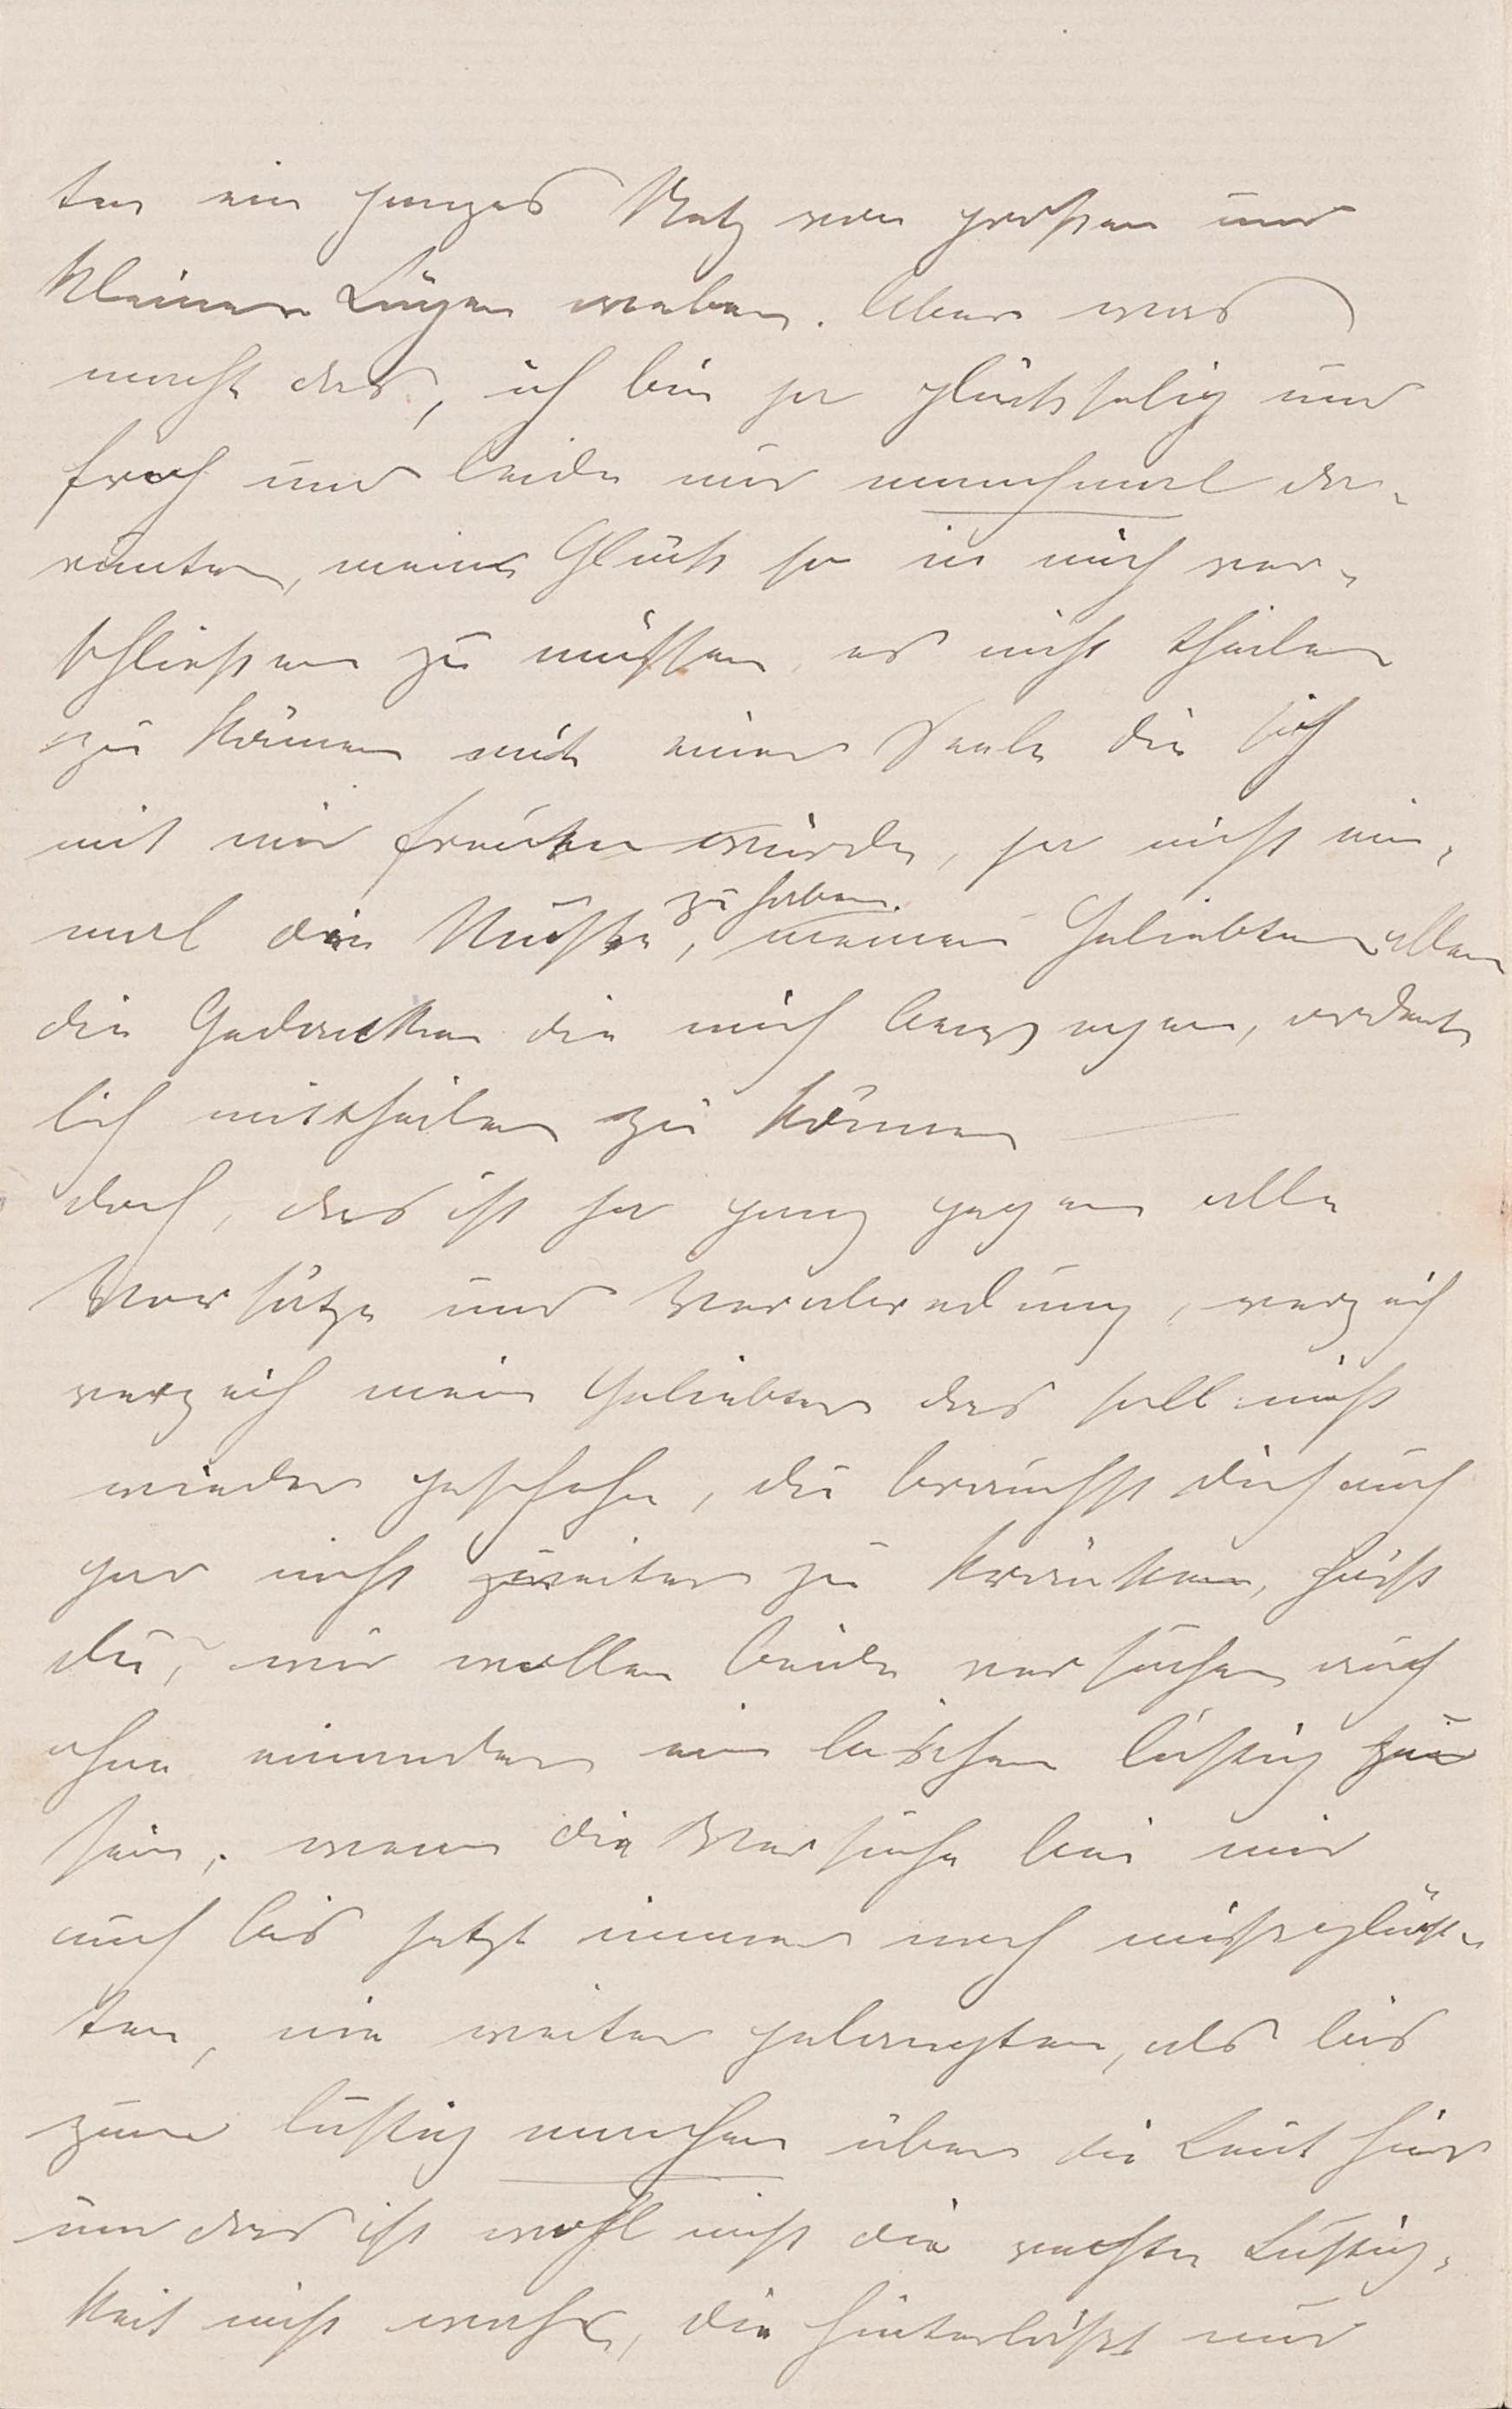 ten ein ganzes Netz von großen und
kleinen Lügen weben. Aber was
macht das, ich bin ja glückselig und
froh und leide nur manchmal da-
runter, mein Glück so in mich ver-
schließen zu müssen, es nicht theilen
zu können mit einer Seele die sich
mit mir freuen würde, ja nicht ein-
mal die Muße zu haben, meinem Geliebten allen
die Gedanken die mich bewegen, ordent
lich mittheilen zu können —
doch, das ist ja ganz gegen alle
Vorsätze und Verabredung, verzeih
verzeih mein Geliebter das soll nicht
wieder geschehn, du brauchst dich auch
gar nicht weiter zu kränken, hörst
du, wir wollen beide versuchen auch
ohne einander ein bischen lustig zu
sein, wenn die Versuche bei mir
auch bis jetzt immer noch mißglück-
ten, nie weiter gelangten, als bis
zum lustig machen über die Leut hier
und das ist wohl nicht die rechte Lustig-
keit nicht wahr, die hinterläßt nur